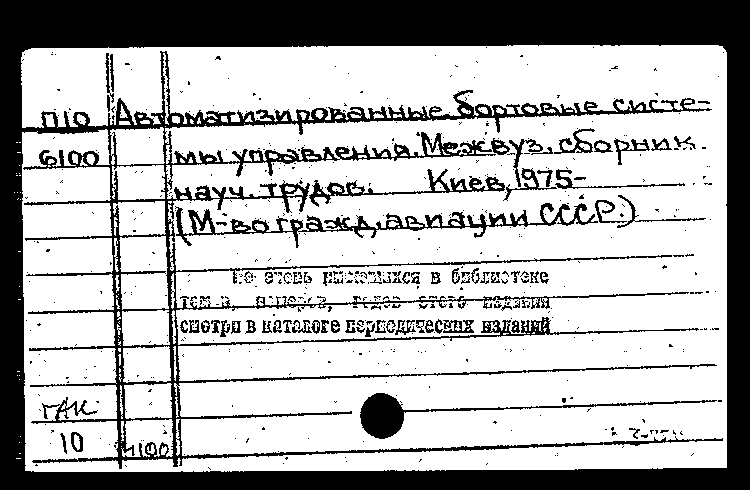 П10 Автоматизированные бортовые систе-
6100 мы управления. Межвуз. сборник
науч. трудов. Киев, 1975-
(М-во гражд. авиации СССР.)
имеющихся в библиотеке
томов, номеров, годов этого издания
смотри в каталоге периодических изданий
ГАК
10 4100